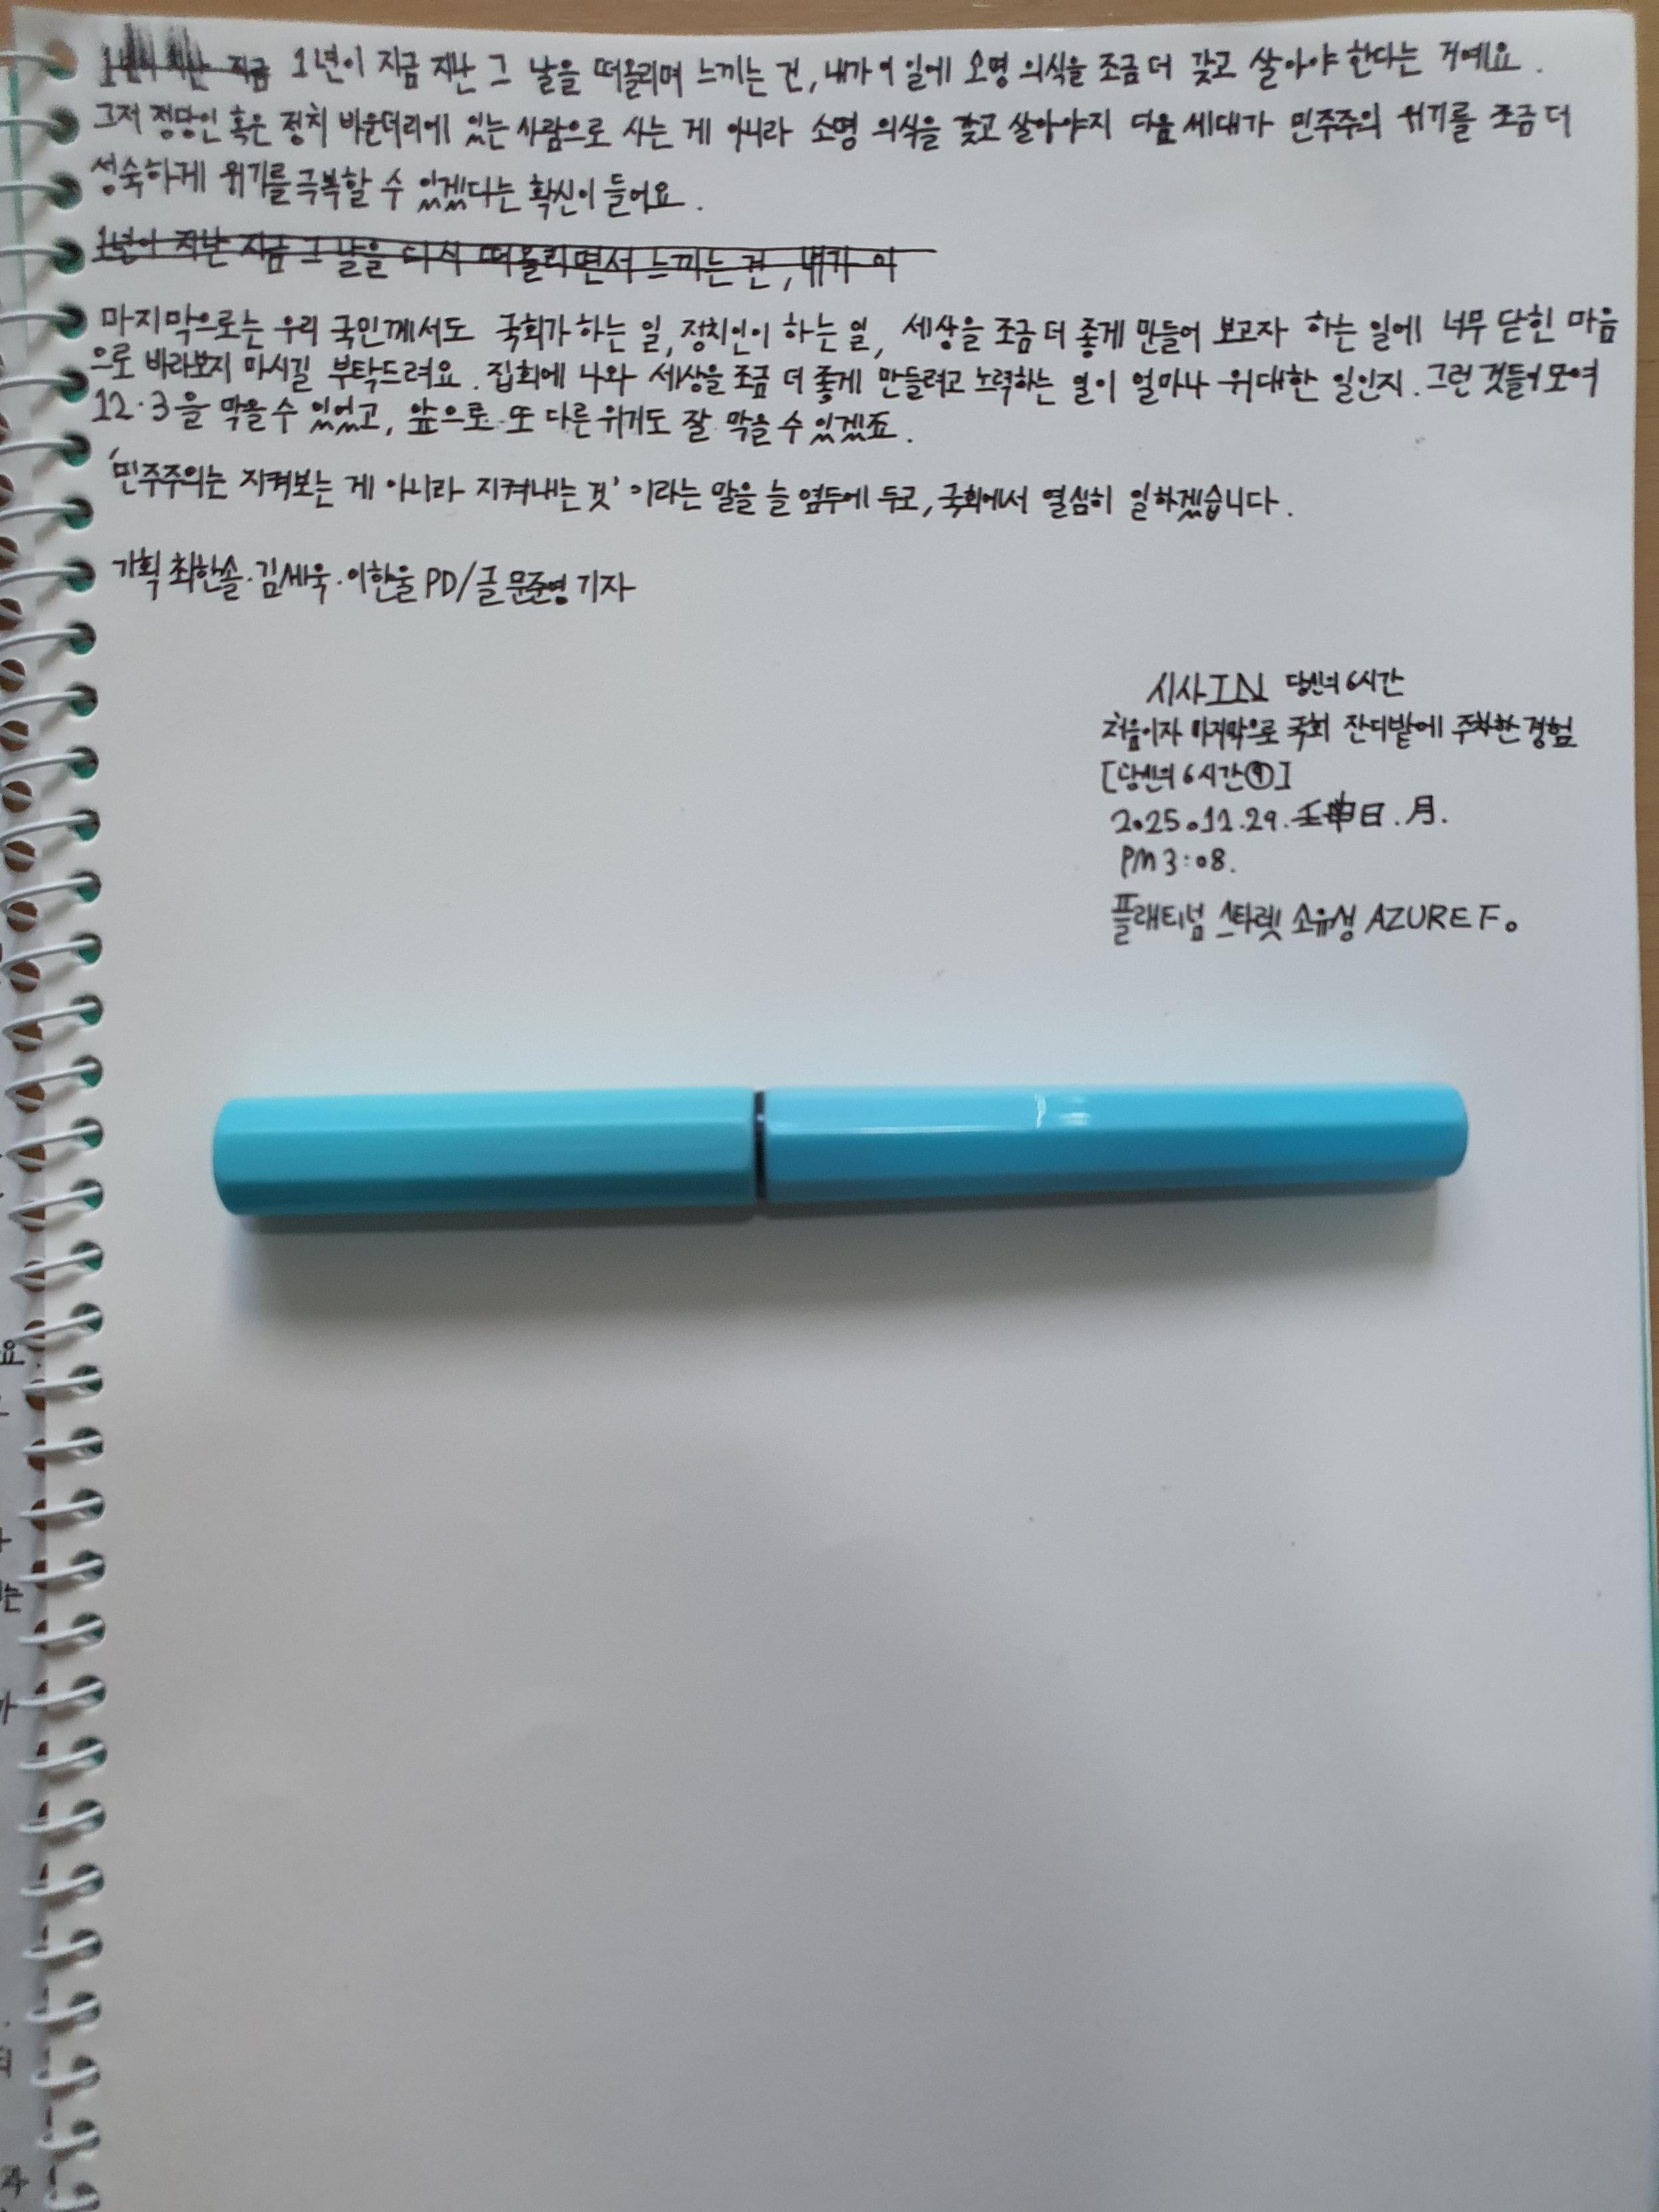 1년이 지난 지금 1년이 지금 지난 그 날을 떠올리며 느끼는 건, 내가 이 일에 오명 의식을 조금 더 갖고 살아야 한다는 거예요.
그저 정당인 혹은 정치 바운더리에 있는 사람으로 사는 게 아니라 소명 의식을 갖고 살아야지 다음 세대가 민주주의 위기를 조금 더
성숙하게 위기를 극복할 수 있겠다는 확신이 들어요.
1년이 지난 지금 그 날을 다시 떠올리면서 느끼는 건, 내가 이
마지막으로는 우리 국민께서도 국회가 하는 일, 정치인이 하는 일, 세상을 조금 더 좋게 만들어 보고자 하는 일에 너무 닫힌 마음
으로 바라보지 마시길 부탁드려요. 집회에 나와 세상을 조금 더 좋게 만들려고 노력하는 일이 얼마나 위대한 일인지. 그런 것들이 모여
12·3을 막을 수 있었고, 앞으로 또 다른 위기도 잘 막을 수 있겠죠.
'민주주의는 지켜보는 게 아니라 지켜내는 것' 이라는 말을 늘 염두에 두고, 국회에서 열심히 일하겠습니다.
기획 최한솔·김세욱·이한울 PD/글 문준영 기자
시사IN 당신의 6시간
처음이자 마지막으로 국회 잔디밭에 주차한 경험
[당신의 6시간④]
2025.12.29. 壬申日. 月.
PM 3:08.
플래티넘 스타렛 소유성 AZURE F.
요.
는
가
과